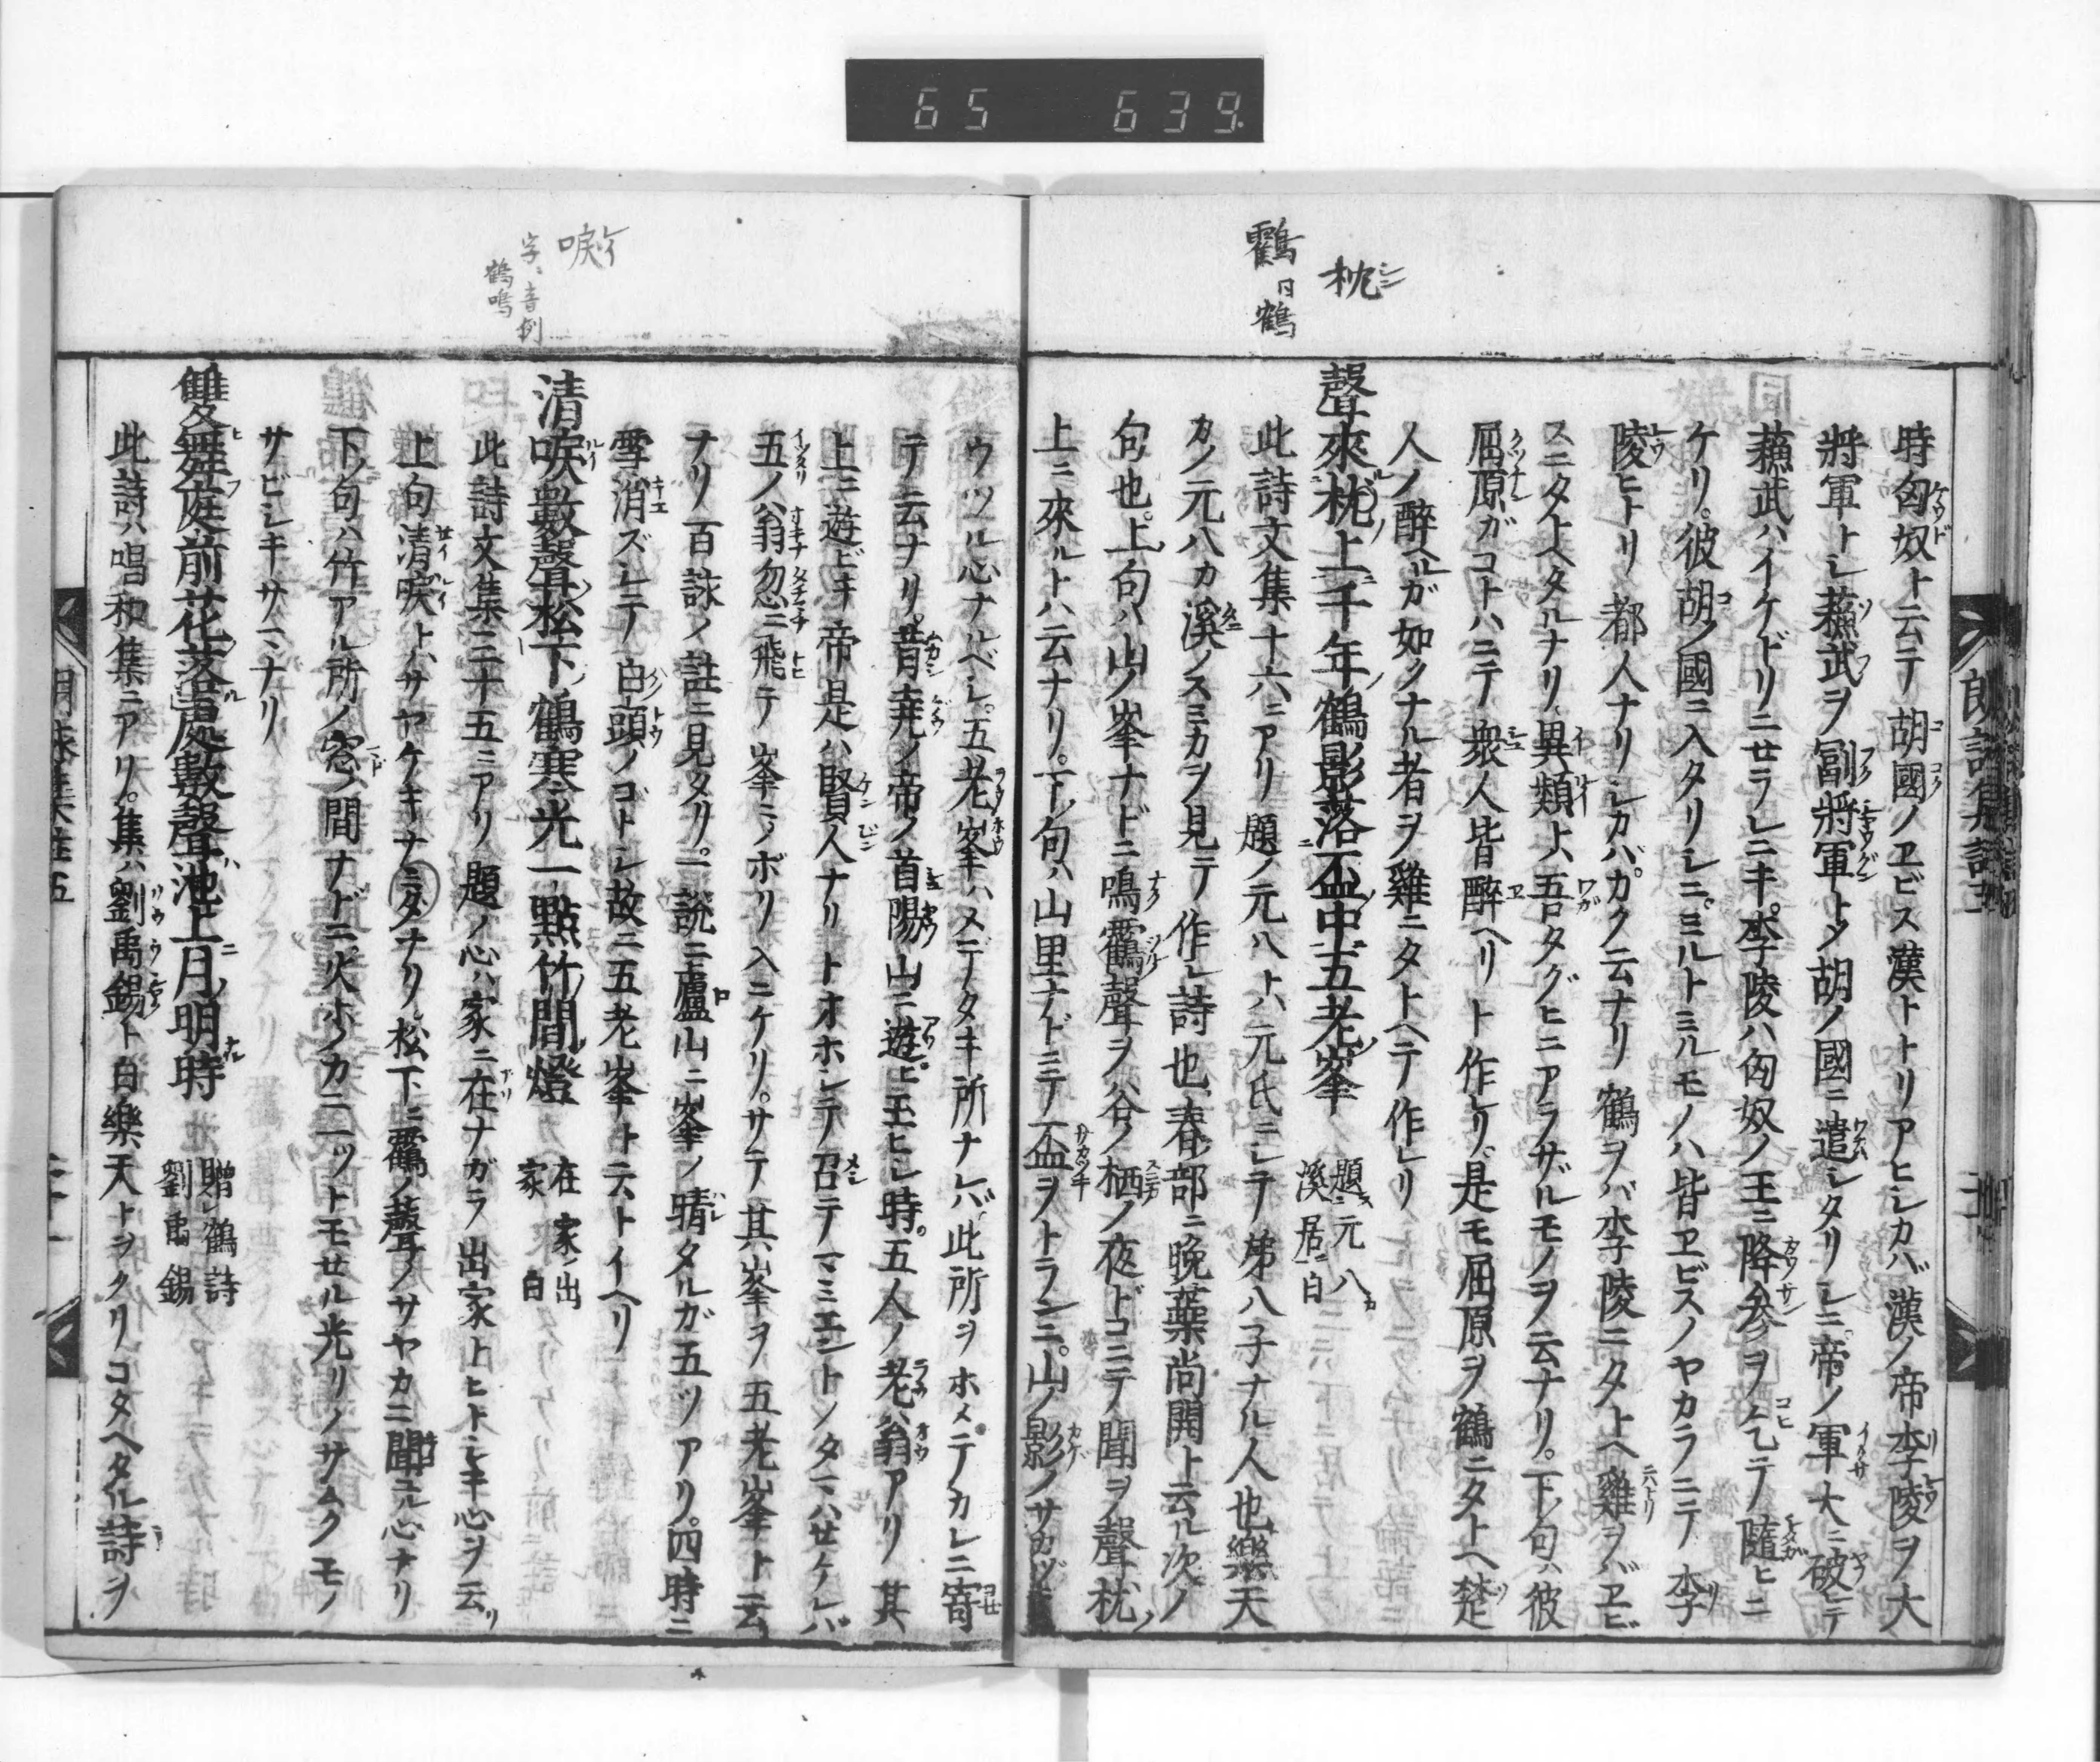 65 639
枕
鸖 日 鶴
時匈奴ト云テ胡國ノヱビス漢トトリアヒシカバ漢ノ帝李陵ヲ大
將軍トシ蘓武ヲ副將軍トシ胡ノ國ニ遣シタリシニ帝ノ軍大ニ破ヒテ
蘓武ハイケドリニセラレニキ李陵ハ匈奴ノ王ニ降参ヲノ乞テ隨ヒニ
ケリ。彼胡ノ國ニ入タリシニミルトミルモノハ皆ヱビスノヤカラニテ李
陵ヒトリ都人ナリシカバカク云ナリ鶴ヲバ李陵ニタトヘ雞ヲバヱビ
スニタトヘタルナリ異類トハ吾タグヒニアラザルモノヲ云ナリ。下句ハ彼
屈原ガコトハニテ衆人皆醉ヘリト作レリ。是モ屈原ヲ鶴ニタトヘ楚
人ノ醉ヘルガ如クナル者ヲ雞ニタトヘテ作レリ
聲來枕上千年鶴影落盃中五老峯 題元八溪居 白
此詩文集十六ニアリ題ノ元八トハ元氏ニシテ第八子ナル人也樂天
カノ元八カ溪ノスミカヲ見テ作レ詩也春部ニ晩蘂尚開ト云ル次ノ
句也。上句ハ山ノ峯ナドニ鳴鸖聲ヲ谷ノ栖ノ夜ドコニテ聞ヲ聲枕ノ
上ニ來ルトハ云ナリ。下句ハ山里ナドニテ盃ヲトランニ。山ノ影ノサカヅキ
唳
字、音例
鶴鳴
ウツル心ナルベシ。五老峯ハメデタキ所ナレバ此所ヲホメテカレニ寄
テ云ナリ。昔尭ノ帝ノ首陽山ニ遊ヒ玉ヒシ時。五人ノ老翁アリ其
上ニ遊ビキ帝是ハ賢人ナリトオホシテ召テマミエントノタマハセケレバ
五ノ翁忽ニ飛テ峯ニノボリ入ニケリ。サテ其峯ヲ五老峯ト云
ナリ百詠ノ註ニ見タリ。一說ニ廬山ニ峯ノ晴タルガ五ツアリ。四時ニ
雪消ズシテ白頭ノゴトシ故ニ五老峯ト云トイヘリ
清唳數聲松下鶴寒光一點竹間燈 在家出家 白
此詩文集三十五ニアリ題ノ心ハ家ニ在ナガラ出家トヒトシキ心ヲ云リ
上句清唳トハサヤケキナミダナリ松下ニ鸖ノ聲ノサヤカニ聞ユル心ナリ
下ノ句ハ竹アル所ノ窓ノ間ナドニ火ホノカニ一ツトモセル光リノサムクモノ
サビシキサマナリ
雙舞庭前花落處數聲池上月明時 贈鶴詩 劉禹錫
此詩ハ唱和集ニアリ。集ハ劉禹錫ト白樂天トヲクリコタヘタル詩ヲ